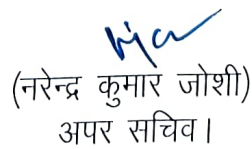 (नरेन्द्र कुमार जोशी)
अपर सचिव।